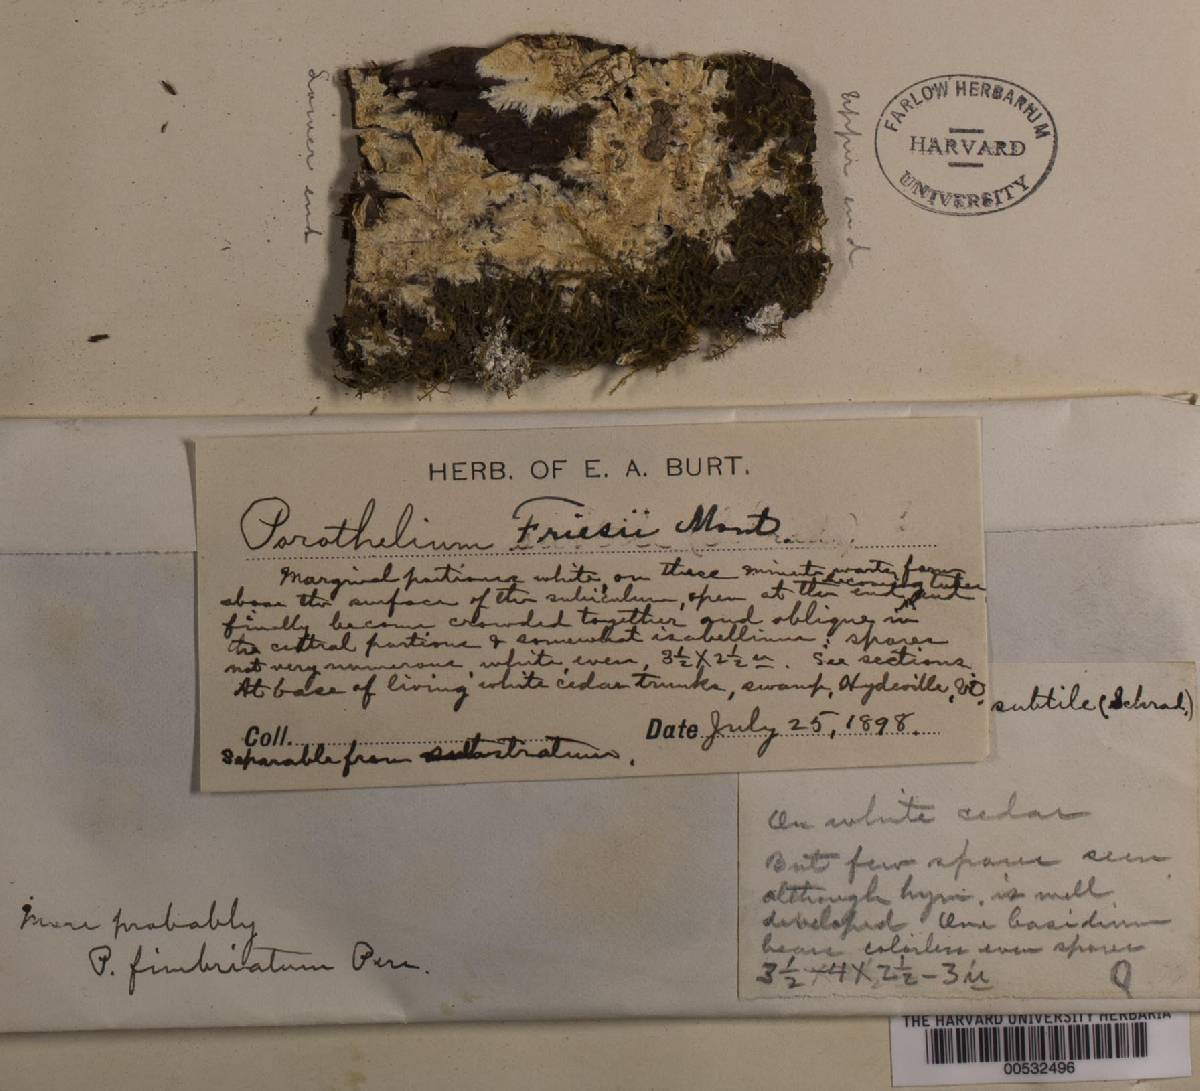 Lower end
Upper end
FARLOW HERBARIUM
HARVARD
UNIVERSITY
HERB. OF E. A. BURT.
Porothelium Friesii Mont.
Marginal portions white, on these minute warts form
above the surface of the subiculum, open at the end becoming tubes
finally become crowded together and oblique in
the central portions & somewhat isabelline; spores
not very numerous, white, even, 3½ X 2½ u. See sections
At base of living white cedar trunks, swamp, Hydeville, Vt.
Coll. Date July 25, 1898.
Separable from substratum.
subtile (Schrad.)
On white cedar
But few spores seen
although hym. is well
developed One basidium
bears colorless even spores
3½-4 X 2½-3 u
More probably
P. fimbriatum Pers.
THE HARVARD UNIVERSITY HERBARIA
00532496